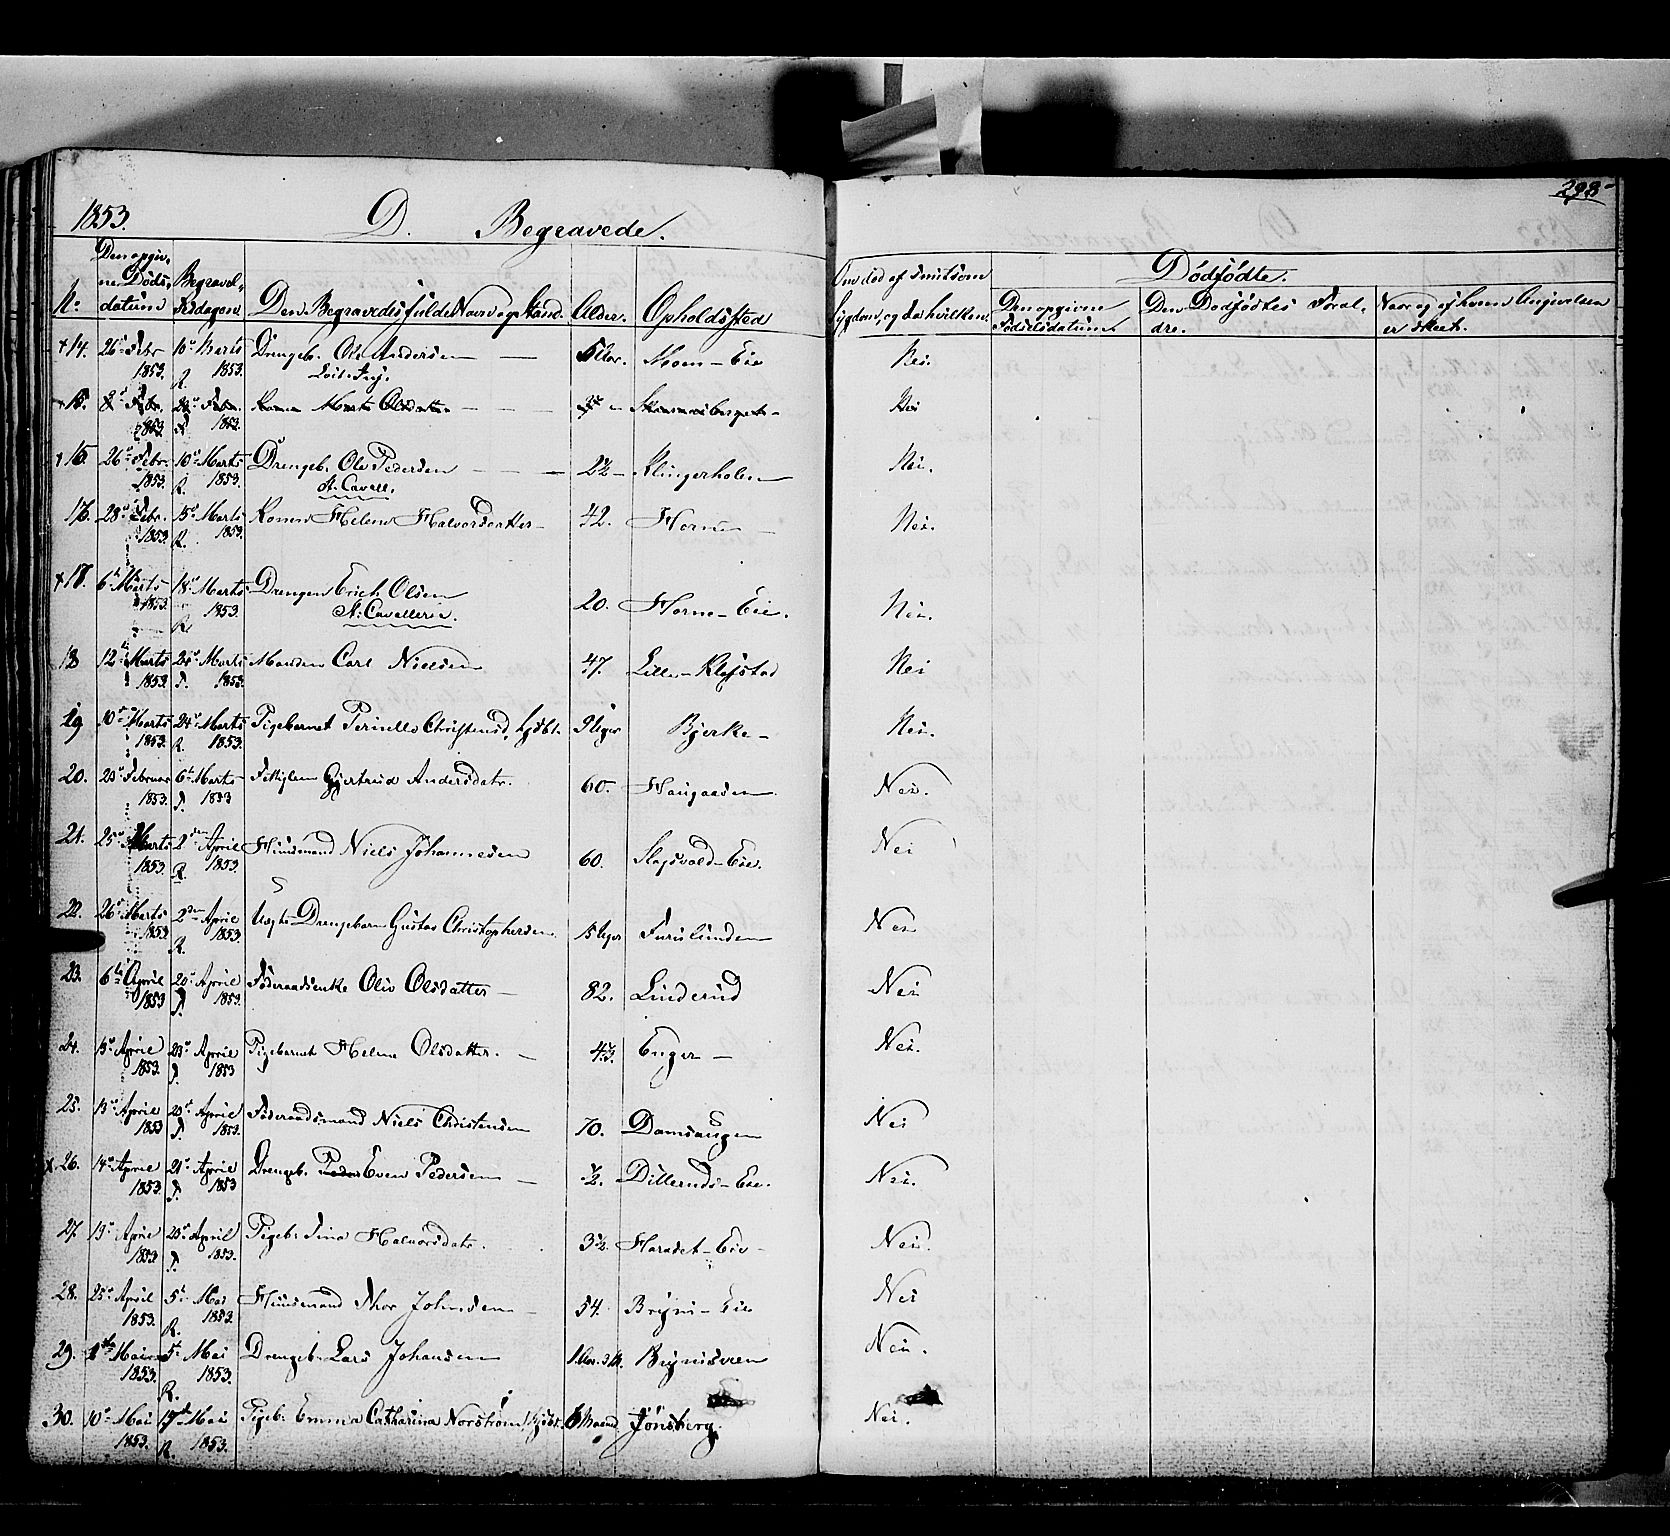 298
1853. D. Begravede.
No. Den opgivne Døds-datum Begravel-sesdagen Den Begravedes fulde Navn og Stand. Alder. Opholdssted Om død af smitsom Sygdom, og da hvilken. Dødfødte.
Den opgivne Fødselsdatum. Den Dødfødtes Foræl-dre. Naar og af hvem Angivelsen er skeet.
+14. 26 Febr 1853. 10 Marts 1853. R. Drengeb. Ole Andersen — Moen-Eie Nei.
+15. Febr. 1853 Febr. 1853. Olsdatter Nei
+15. 26 Febr. 1853. 10 Marts 1853. R. Drengeb. Ole Pedersen — 2½ - Klingerholen Nei.
A. Cavall.
16. 28 Febr. 1853. 15 Marts 1853. R. Konen Helene Halvorsdatter - 42. Horne - Nei.
+17. 6te Marts 1853. 18 Marts 1853 R. Drengen Erich Olsen 20. Horne-Eie. Nei.
A. Cavalleri.
18 12te Marts 1853. Marts 1853. Manden Carl Nielsen 47. Lille-Kløfstad Nei
19 10 Marts 1853. 24 Marts 1853. R. Pigebarnet Pernille Christensd. hjdbt. 9 Uger Bjerke - Nei.
20. Februar 1853. 6te Marts 1853 Gjertrud Andersdatr. 60. Haugaasen Nei.
21. 25 Marts 1853. 2den April 1853. R. Huusmand Niels Johannesen 60. Slagsvold-Eie. Nei
22. 26 Marts 1853. 2den April 1853. R. Uægte Drengebarn Gustav Christophersen 15 Uger Furulunden Nei
23. 6te April 1853 20 April 1853. Føderaadsenke Oliv Olsdatter - 82. Linderud Nei
24. 13 April 1853. 23 April 1853 Pigebarnet Helene Olsdatter. - Enger - Nei.
25. 13 April 1853 20 April 1853. Føderaadsmand Niels Christensen 70. Damsaugen Nei
+26. 14 April 1853. 21 April 1853 Drengeb. Even Pedersen - ½. Dillerud-Eie. Nei.
27. 19 April 1853 April 1853. Pigeb. Tina Halvorsdatr. 3½. Haradet-Eie - Nei.
28. 25 April 1853. 5te Mai 1853. R. Huusmand Thor Johnsen - 54. Bryni-Eie Nei
29. Mai 1853. 5te Mai 1853. R. Drengeb. Lars Johansen Brynisveen Nei.
30. 10 Mai 1853. 17de Mai 1853. R. Pigeb. Emma Catharina Norström hjdbt. 6 Maaned Jönsberg. Nei.